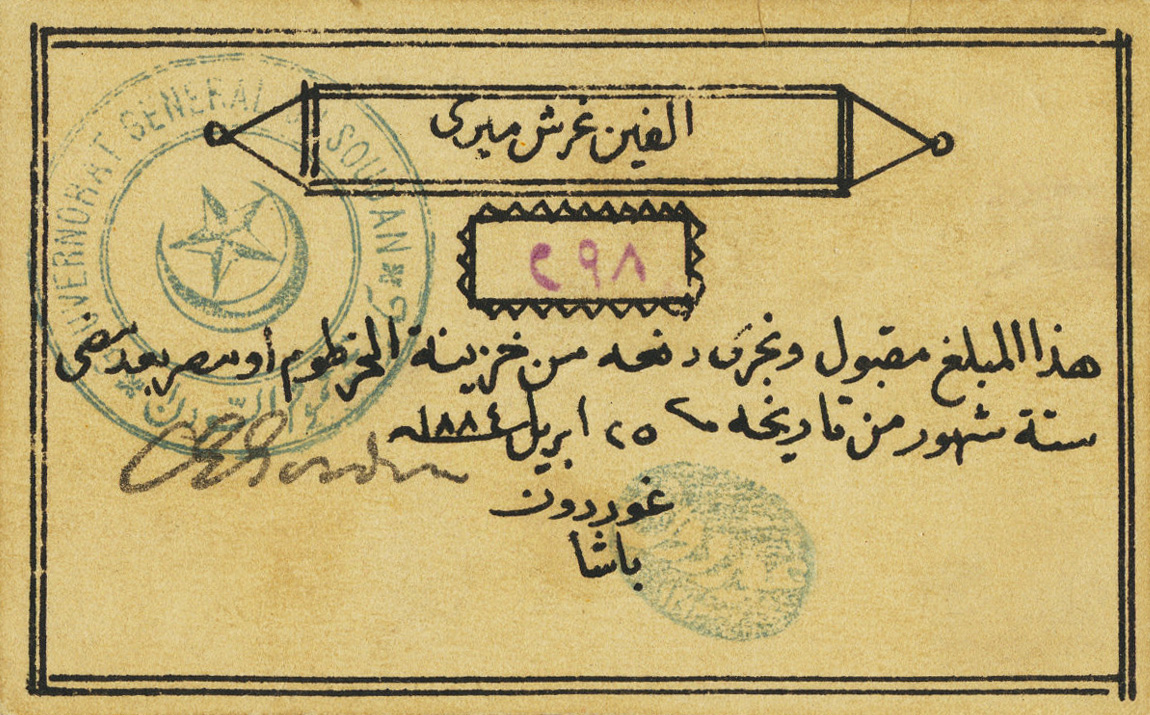 الفين غرش ميرى
٢٩٨
هذا المبلغ مقبول ونجرى دفعه من خزينة الخرطوم أو مصر بعد مضى
ستة شهور من تاريخه ٢٥ ابريل ١٨٨٤
C E Gordon
غوردون
باشا
GOUVERNORAT GENERAL DU SOUDAN